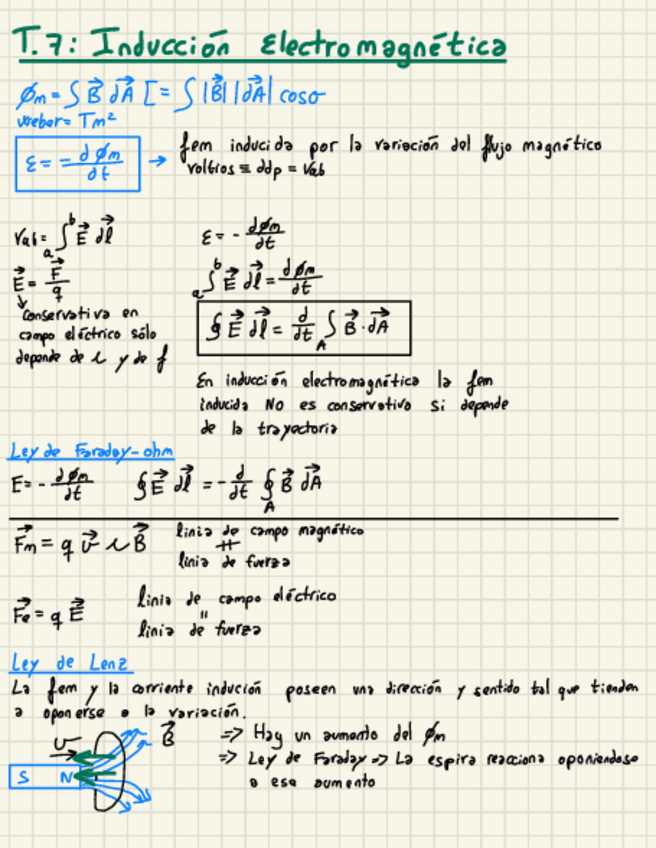 T.7: Inducción Electromagnética
Øm = ∫ B⃗ dA⃗ [= ∫ |B⃗| |dA⃗| cosσ
weber = Tm²
ε = - dØm/dt → fem inducida por la variación del flujo magnético
voltios ≡ ddp = Vab
Vab = ₐ∫ᵇ E⃗ dl⃗
E⃗ = F⃗/q
↳ Conservativa en
campo eléctrico sólo
depende de i y de f
ε = - dØm/dt
ₐ∫ᵇ E⃗ dl⃗ = dØm/dt
∮ E⃗ dl⃗ = d/dt ∫_A B⃗ · dA⃗
En inducción electromagnética la fem
inducida NO es conservativa si depende
de la trayectoria
Ley de Faraday-ohm
E = - dØm/dt ∮ E⃗ dl⃗ = - d/dt ∮_A B⃗ dA⃗
F⃗m = q v⃗ ∧ B⃗
linia de campo magnético
≠
linia de fuerza
F⃗e = q E⃗
linia de campo eléctrico
"
linia de fuerza
Ley de Lenz
La fem y la corriente indución poseen una dirección y sentido tal que tienden
a oponerse a la variación.
v⃗
B⃗
S N
=> Hay un aumento del Øm
=> Ley de Faraday => La espira reacciona oponiendose
a ese aumento